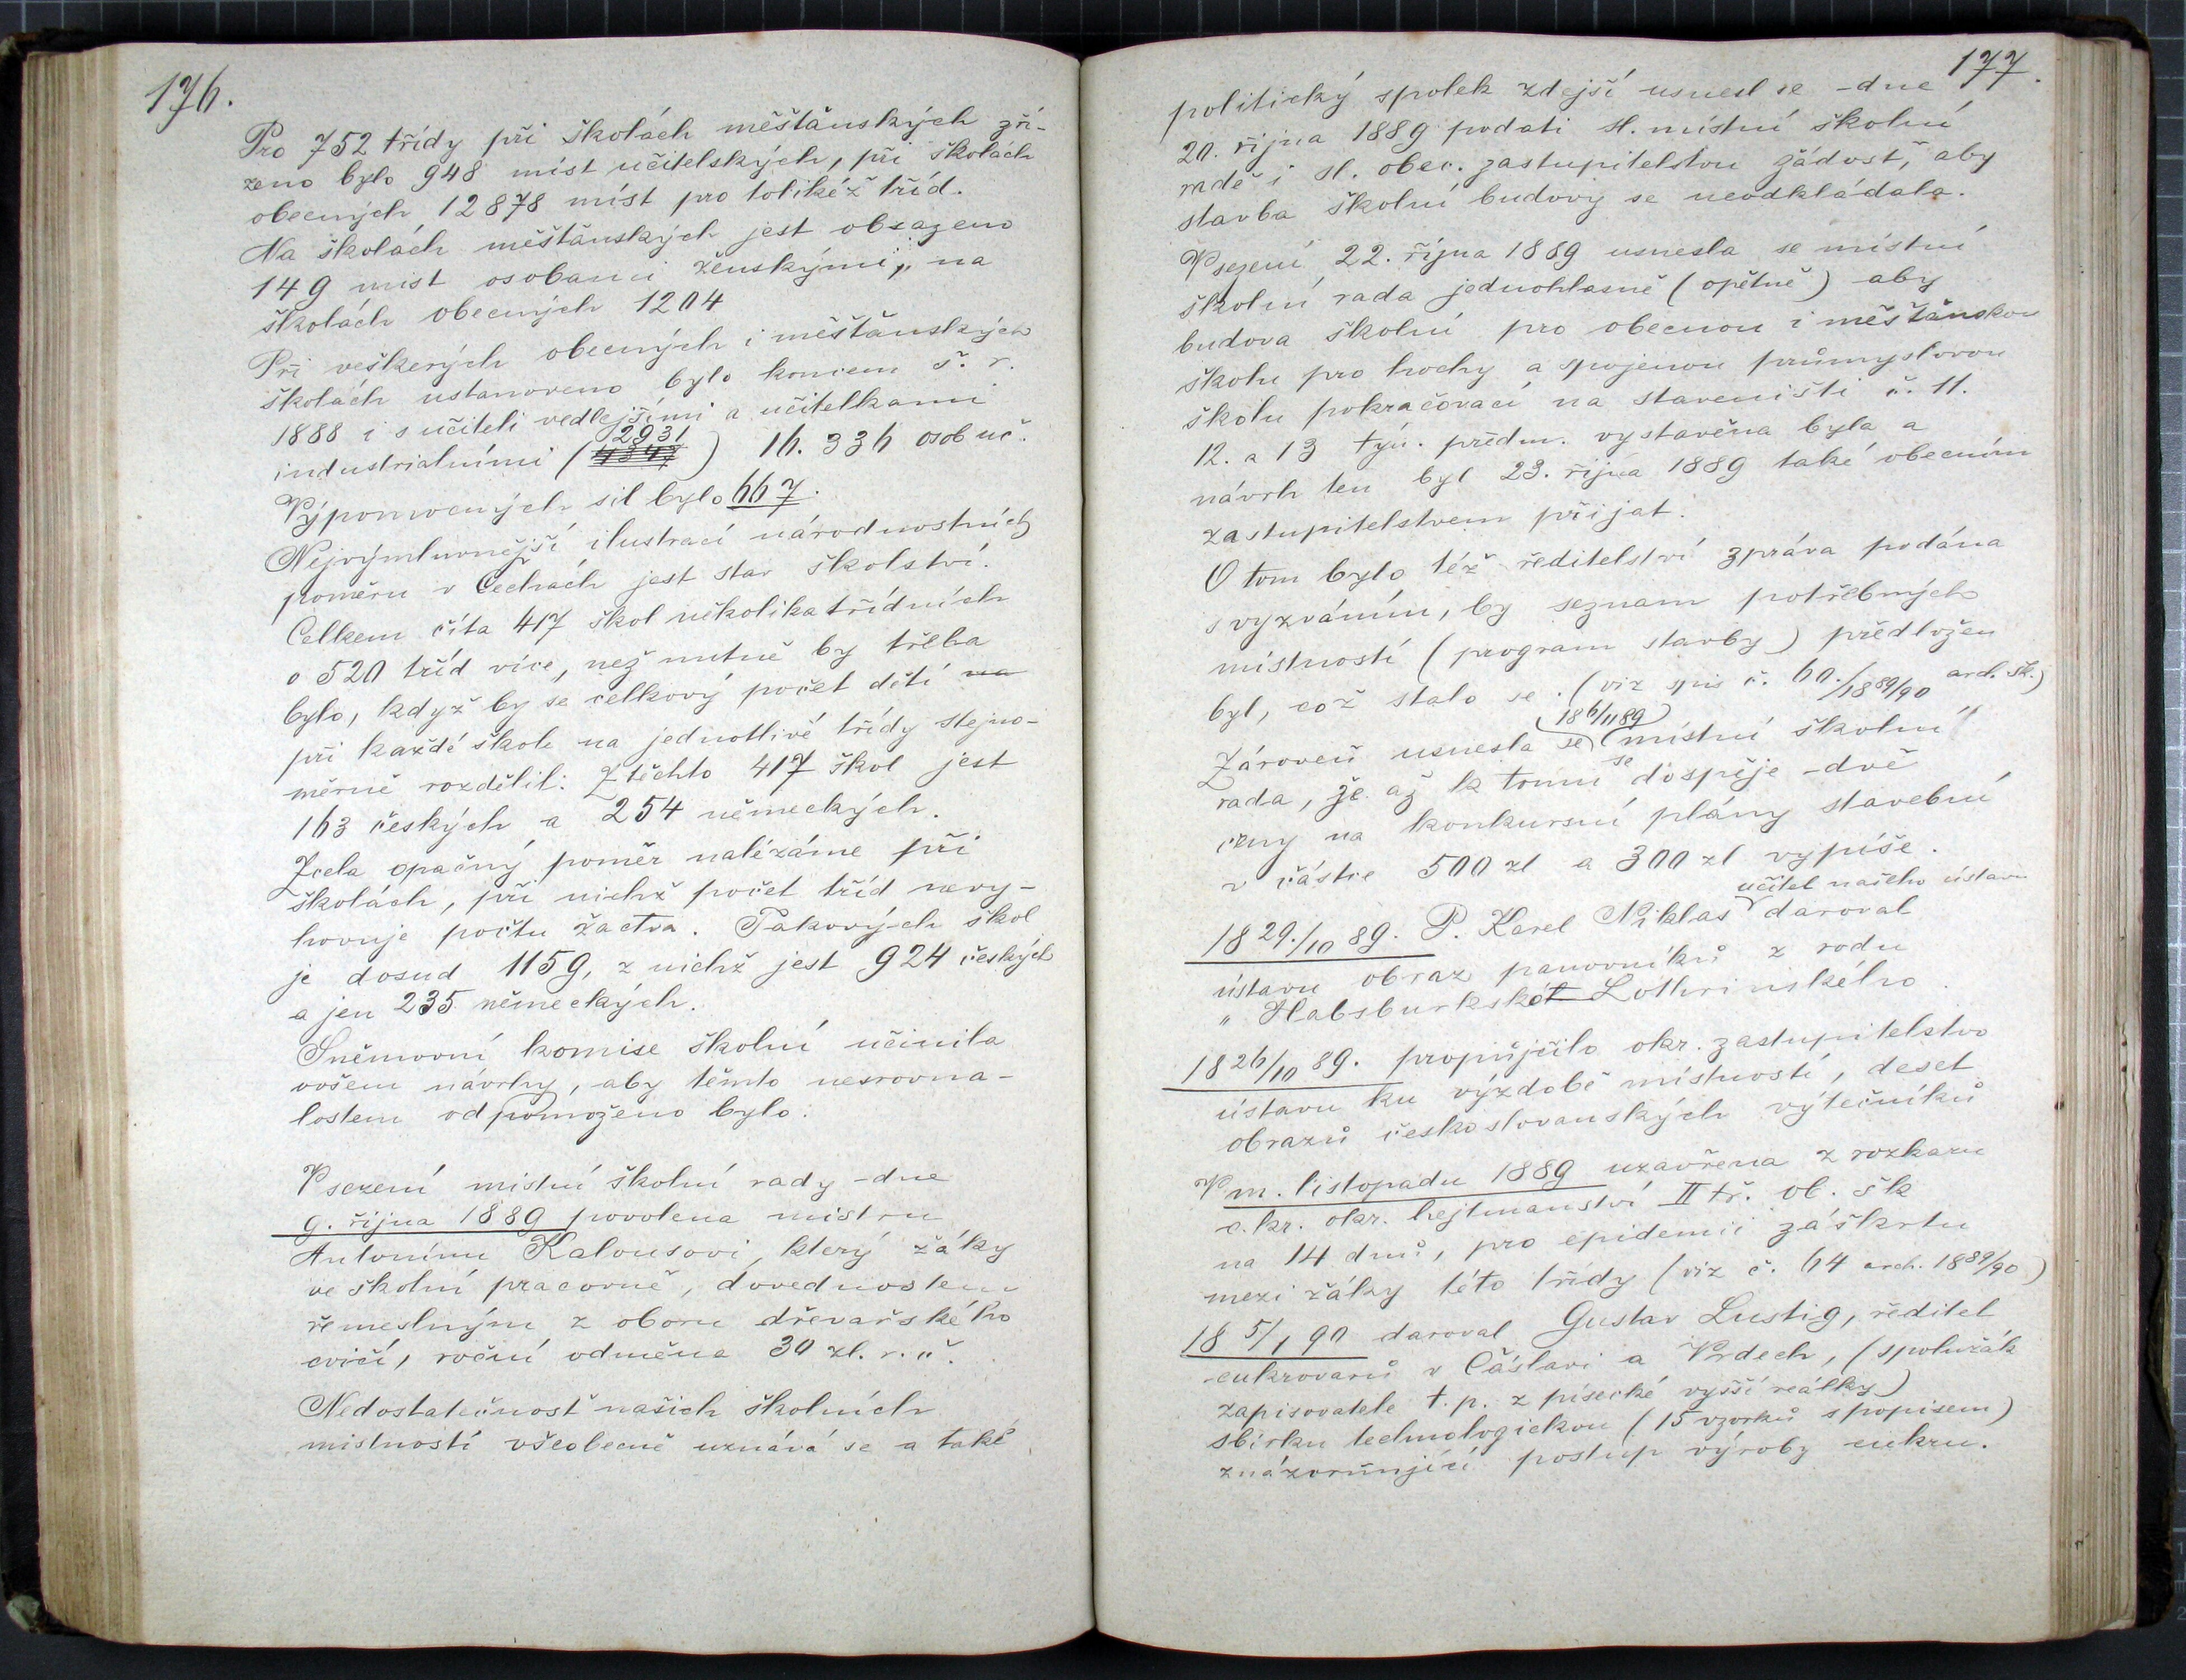 176.
Pro 752 třídy při školách měšťanských zří-
zeno bylo 948 míst učitelských, při školách
obecných 12878 míst pro tolikéž tříd.
Na školách měšťanských jest obsazeno
149 míst osobami ženskými, na
školách obecných 1204
Při veškerých obecných i měšťanských
školách ustanoveno bylo koncem š. r.
1888 i s učiteli vedlejšími a učitelkami
2931
industrialními (4347) 16.336 osob uč.
Výpomocných sil bylo 667.
Nejvýmluvnější ilustrací národnostních
poměru v Čechách jest stav školství.
Celkem číta 417 škol několikatřídních
o 520 tříd více, než nutně by třeba
bylo, když by se celkový počet dětí na
při každé škole na jednotlivé třídy stejno-
měrně rozdělil: Z těchto 417 škol jest
163 českých a 254 německých.
Zcela opačný poměr nalézáme při
školách, při nichž počet tříd nevy-
hovuje počtu žactva. Takových škol
je dosud 1159, z nichž jest 924 českých
a jen 235 německých.
Sněmovní komise školní učinila
ovšem návrhy, aby těmto nesrovna-
lostem odpomoženo bylo.
V sezení místní školní rady -dne
9. října 1889 povolena mistru
Antonínu Kalousovi, který žáky
ve školní pracovně, dovednostem
řemeslným z oboru dřevařského
cvičí, roční odměna 30 zl. r. č.
Nedostatečnost našich školních
místností všeobecně uznává se a také
177.
politický spolek zdejší usnesl se -dne
20. října 1889 podati sl. místní školní
radě i sl. obec. zastupitelstvu žádost, aby
stavba školní budovy se neodkládala.
V sezení 22. října 1889 usnesla se místní
školní rada jednohlasně (opětně) aby
budova školní pro obecnou i měšťanskou
školu pro hochy a spojenou průmyslovou
školu pokračovací na staveništi č. 11.
12. a 13 týn. předm. vystavěna byla a
návrh ten byl 23. října 1889 také obecním
zastupitelstvem přijat.
O tom bylo též ředitelství zpráva podána
s vyzváním, by seznam potřebných
místností (program stavby) předložen
byl, což stalo se. (viz spis č. 60./1889/90 arch. šk.)
18 6/11 89
Zároveň usnesla se místní školní
rada, že až k tomu se dospěje -dvě
ceny na konkursní plány stavební
v částce 500 zl a 300 zl vypíše.
učitel našeho ústavu
18 29./10 89. P. Karel Niklas daroval
ústavu obraz panovníků z rodu
„Habsburksko Lothrinského
18 26/10 89. propůjčilo okr. zastupitelstvo
ústavu ku výzdobě místností, deset
obrazů českoslovanských výtečníků
V m. listopadu 1889 uzavřena z rozkazu
c. kr. okr. hejtmanství II tř. ob. šk
na 14 dnů, pro epidemii záškrtu
mezi žáky této třídy (viz č. 64 arch. 1889/90)
18 5/1 90 daroval Gustav Lustig, ředitel
cukrovarů v Čáslavi a Vrdech, (spolužák
zapisovatele t. p. z písecké vyšší reálky)
sbírku technologickou (15 vzorků s popisem)
znázorňující postup výroby cukru.